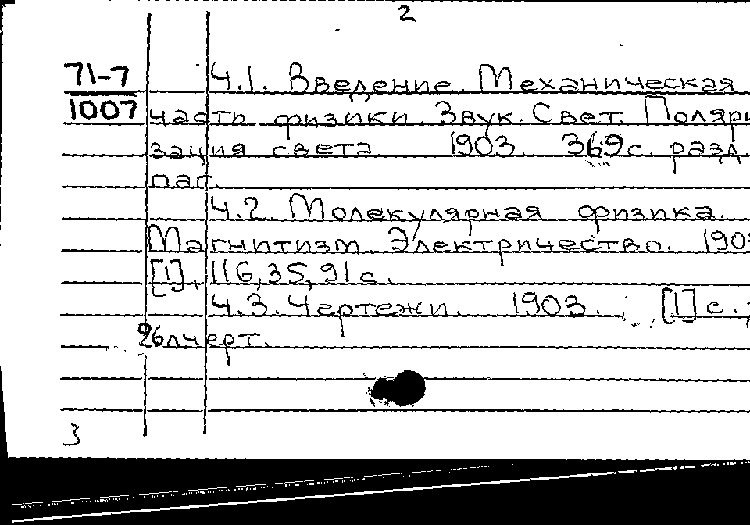 2
71-7 Ч.1. Введение. Механическая
1007 часть физики. Звук. Свет. Поляри
зация света 1903. 369с. разд.
паг.
Ч.2. Молекулярная физика.
Магнитизм. Электричество. 1903
[1], 116, 35, 91 с.
Ч.3. Чертежи. 1903. [1] с.,
26л черт.
3